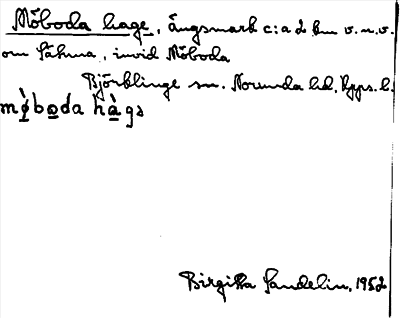 Möboda hage, Ängsmark c:a 2 km v.n.v.
om Såkna, invid Möboda
Björklinge sn. Norunda hd, Upps. l.
mö̀boda hàgs
Birgitta Sandelin, 1952